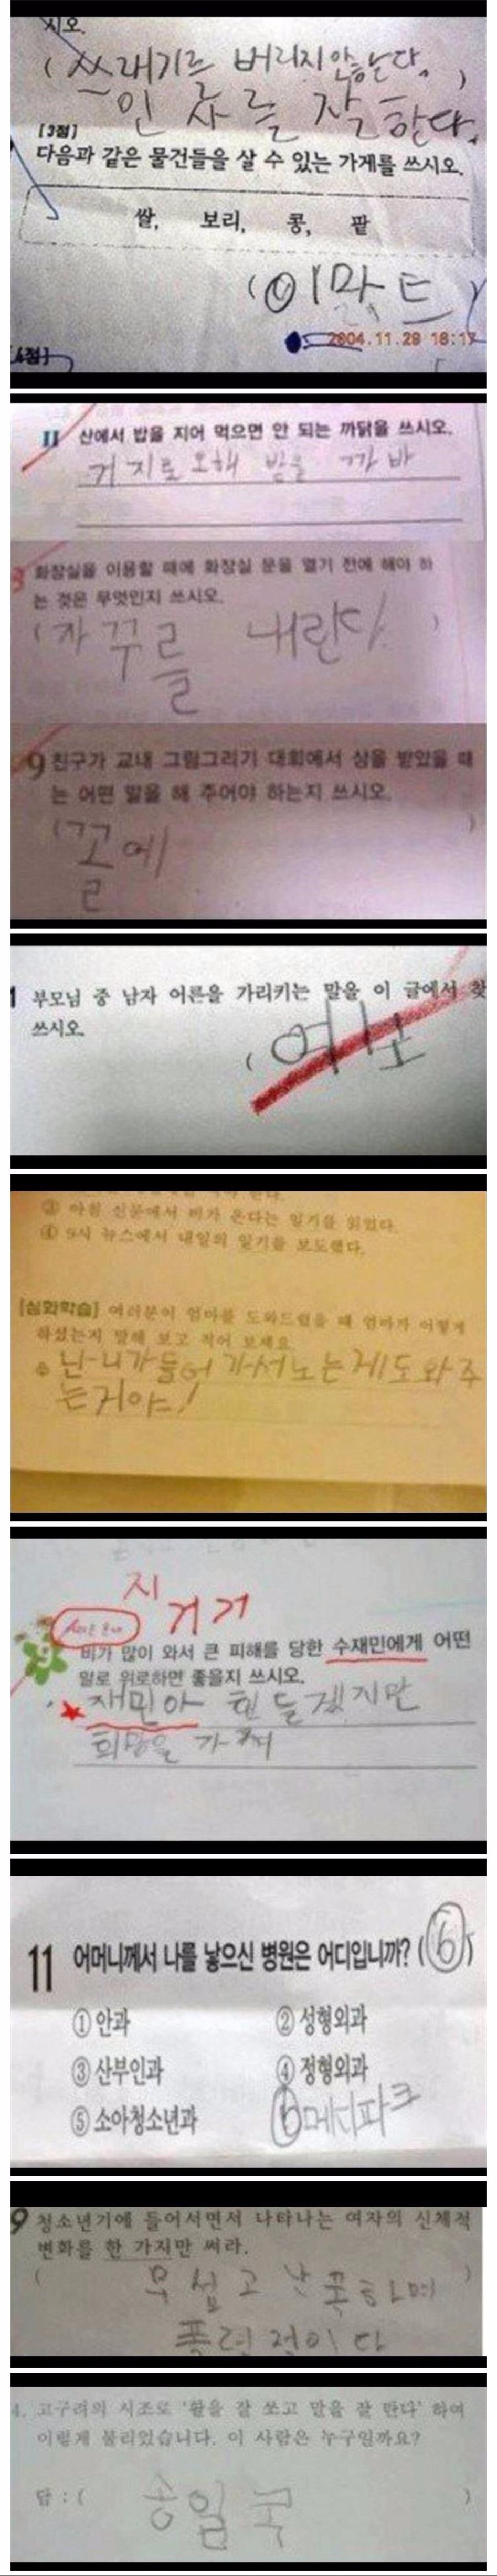 시오.
(쓰레기를 버리지 안는다. )
인사를 잘 한다.
[3점]
다음과 같은 물건들을 살 수 있는 가게를 쓰시오.
쌀, 보리, 콩, 팥
(이마트)
2004.11.29 18:17
[4점]
11 산에서 밥을 지어 먹으면 안 되는 까닭을 쓰시오.
거지로 오해 받을 까바
화장실을 이용할 때에 화장실 문을 열기 전에 해야 하
는 것은 무엇인지 쓰시오.
(자꾸를 내린다. )
9 친구가 교내 그림그리기 대회에서 상을 받았을 때
는 어떤 말을 해 주어야 하는지 쓰시오.
(꼴에 )
1 부모님 중 남자 어른을 가리키는 말을 이 글에서 찾
쓰시오.
(여보
③ 아침 신문에서 비가 온다는 일기를 읽었다.
④ 9시 뉴스에서 내일의 일기를 보도했다.
[심화학습] 여러분이 엄마를 도와드렸을 때 엄마가 어떻게
하셨는지 말해 보고 적어 보세요
난 니가 들어가서 노는게 도와주
는거야!
지
거거
9 비가 많이 와서 큰 피해를 당한 수재민에게 어떤
말로 위로하면 좋을지 쓰시오.
재민아 힘들겠지만
희망을 가져
11 어머니께서 나를 낳으신 병원은 어디입니까? (⑥)
① 안과 ② 성형외과
③ 산부인과 ④ 정형외과
⑤ 소아청소년과 ⑥메디파크
9 청소년기에 들어서면서 나타나는 여자의 신체적
변화를 한 가지만 써라.
( 무섭고 난폭하며 )
폭력적이다
4. 고구려의 시조로 '활을 잘 쏘고 말을 잘 탄다' 하여
이렇게 불리었습니다. 이 사람은 누구일까요?
답 : ( 송일국 )